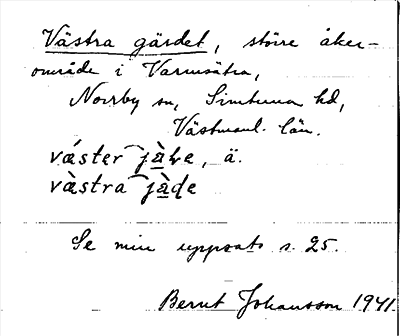 Västra gärdet, större åker-
område i Varmsätra,
Norrby sn, Simtuna hd,
Västmanl. län.
väster jàḍe, ä.
vàstra jàḍe
Se min uppsats s. 25.
Bernt Johansson 1941